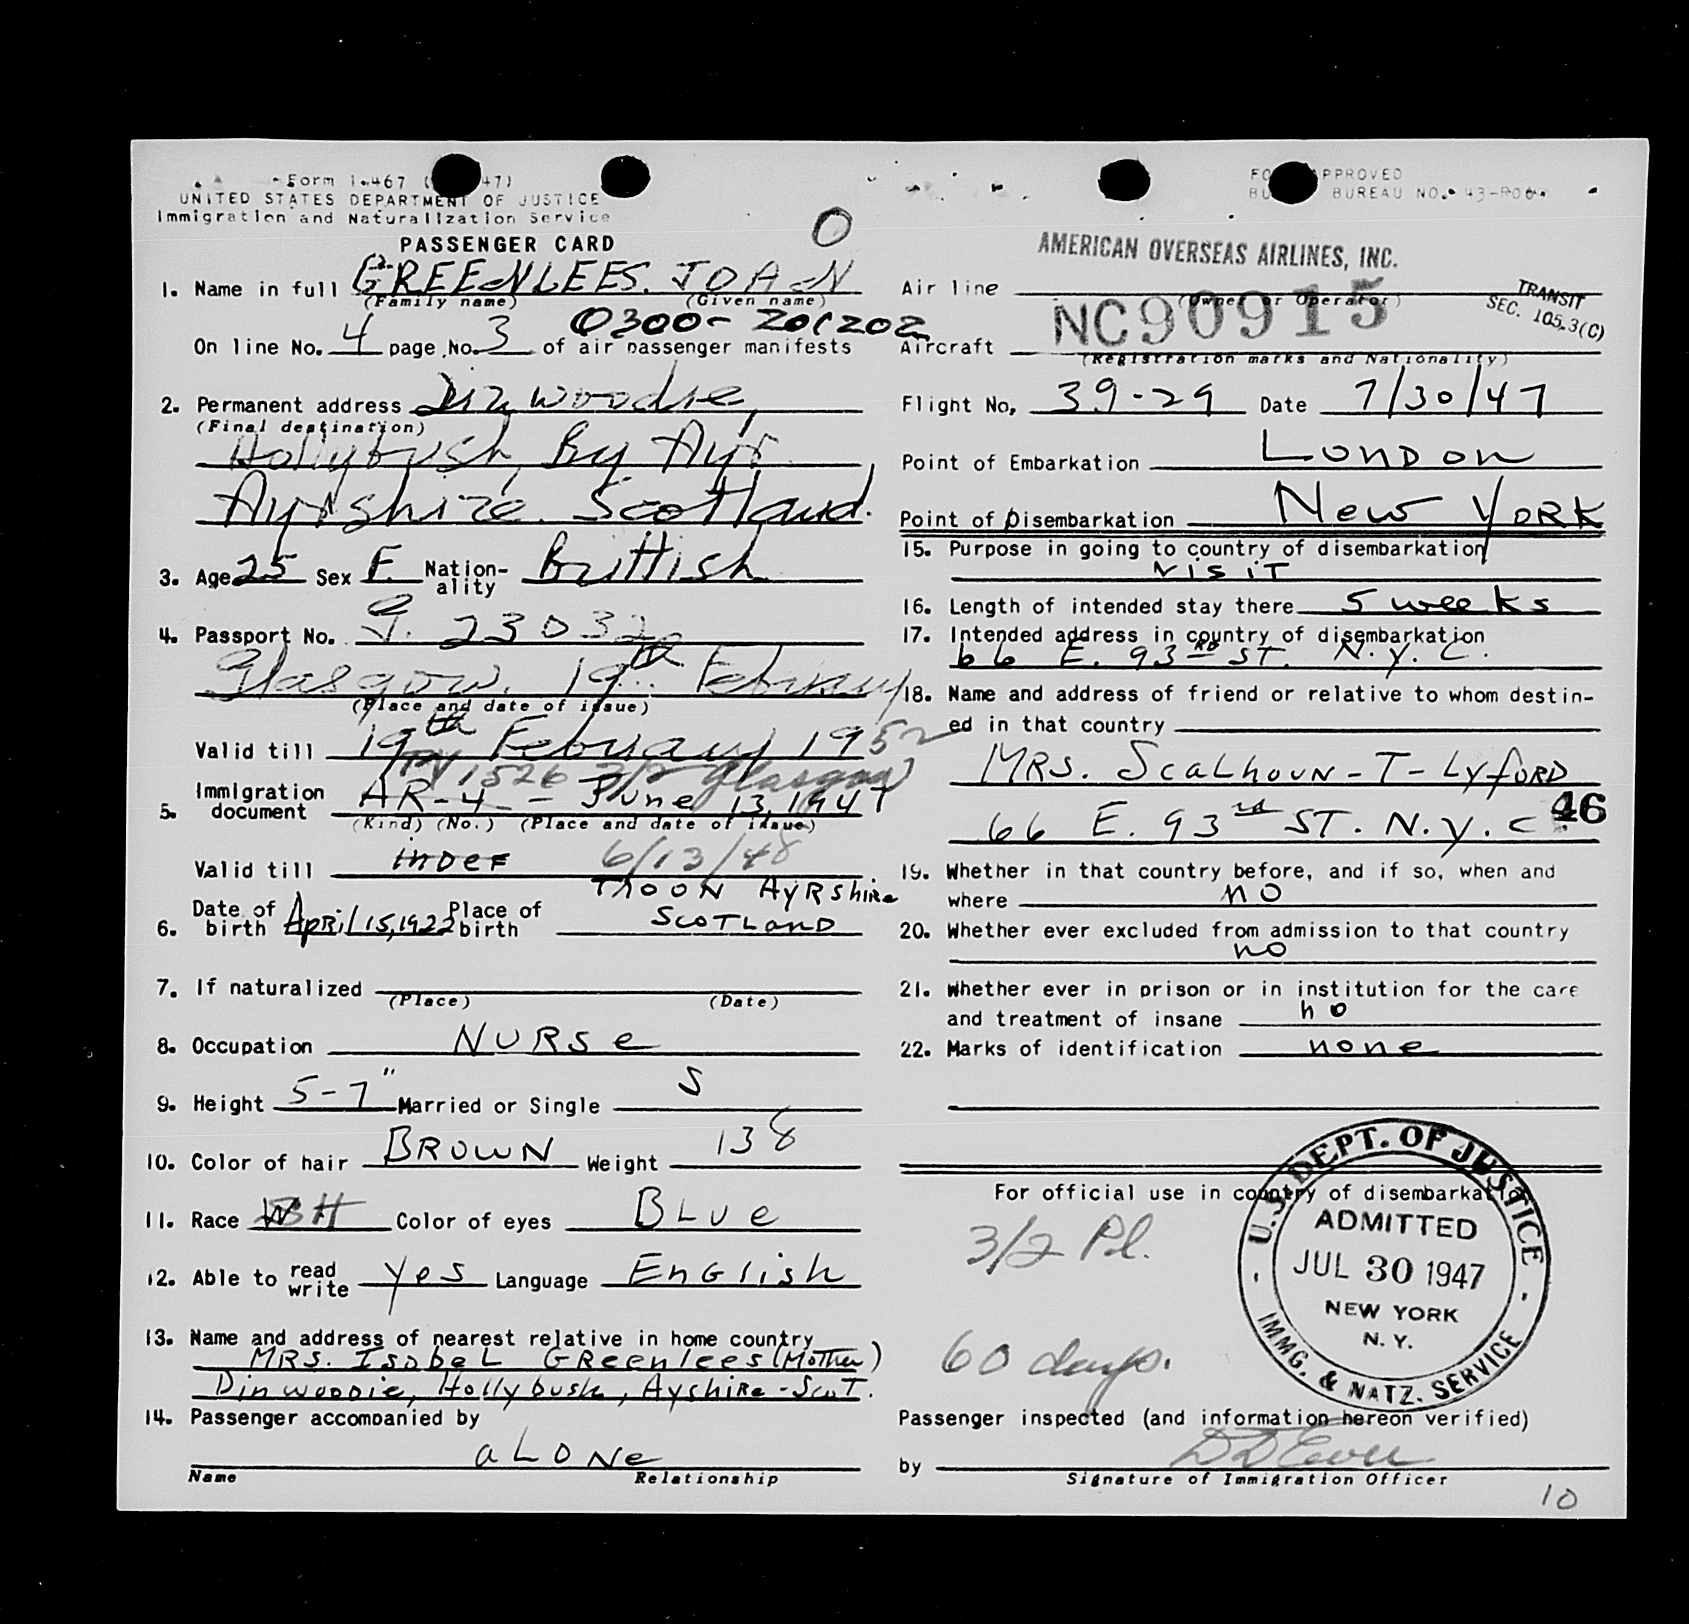 Form I-467 ( 47)
UNITED STATES DEPARTMENT OF JUSTICE
Immigration and Naturalization Service
PASSENGER CARD
O
1. Name in full GREENLEES. JOAN
(Family name) (Given name)
0300-201202
On line No. 4 page No. 3 of air passenger manifests
2. Permanent address Dinwoodie,
(Final destination)
Hollybush, By Ayr
Ayrshire. Scotland.
3. Age 25 Sex F. Nation-ality Brittish
4. Passport No. 23032
Glasgow. 19th February
(Place and date of issue)
Valid till 19th February 1952
PV 1526 3/2 Glasgow
5. Immigration document AR-4 - June 13, 1947
(Kind) (No.) (Place and date of issue)
Valid till inDeF 6/13/48
TROON AyRshire
6. Date of birth ApRil 15, 1922 Place of birth SCOTLAND
7. If naturalized
(Place) (Date)
8. Occupation NURSe
9. Height 5-7" Married or Single S
10. Color of hair BROWN Weight 138
11. Race WH Color of eyes BLue
12. Able to read write yes Language EnGlish
13. Name and address of nearest relative in home country
MRS. IsabeL GReenlees (Mother)
Dinwoodie, Hollybush, AyshiRe-ScoT.
14. Passenger accompanied by
aLONe
Name Relationship
APPROVED
BUREAU NO.
AMERICAN OVERSEAS AIRLINES, INC.
Air line
(Owner or Operator)
TRANSIT
SEC. 105.3(C)
Aircraft NC90915
(Registration marks and Nationality)
Flight No. 39-29 Date 7/30/47
Point of Embarkation LonDon
Point of Disembarkation New YORK
15. Purpose in going to country of disembarkation
visiT
16. Length of intended stay there 5 weeks
17. Intended address in country of disembarkation
66 E. 93RD ST. N.Y.C.
18. Name and address of friend or relative to whom destin-
ed in that country
MRS. ScaLhoun-T-LyfoRD
66 E. 93rd ST. N.Y.C.
46
19. Whether in that country before, and if so, when and
where NO
20. Whether ever excluded from admission to that country
NO
21. Whether ever in prison or in institution for the care
and treatment of insane no
22. Marks of identification none
For official use in country of disembarkation
3/2 Pl.
60 days.
U.S. DEPT. OF JUSTICE
ADMITTED
JUL 30 1947
NEW YORK
N.Y.
IMMG. & NATZ. SERVICE
Passenger inspected (and information hereon verified)
by
Signature of Immigration Officer
10